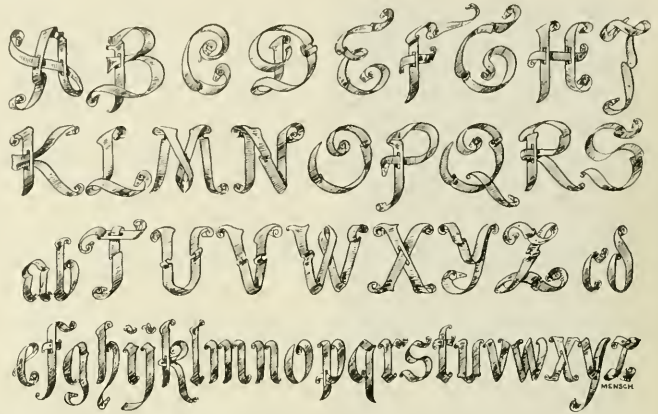 A B C D E F G H I
K L M N O P Q R S
a b T U V W X Y Z c d
e f g h i j k l m n o p q r s t u v w x y z
MENSCH